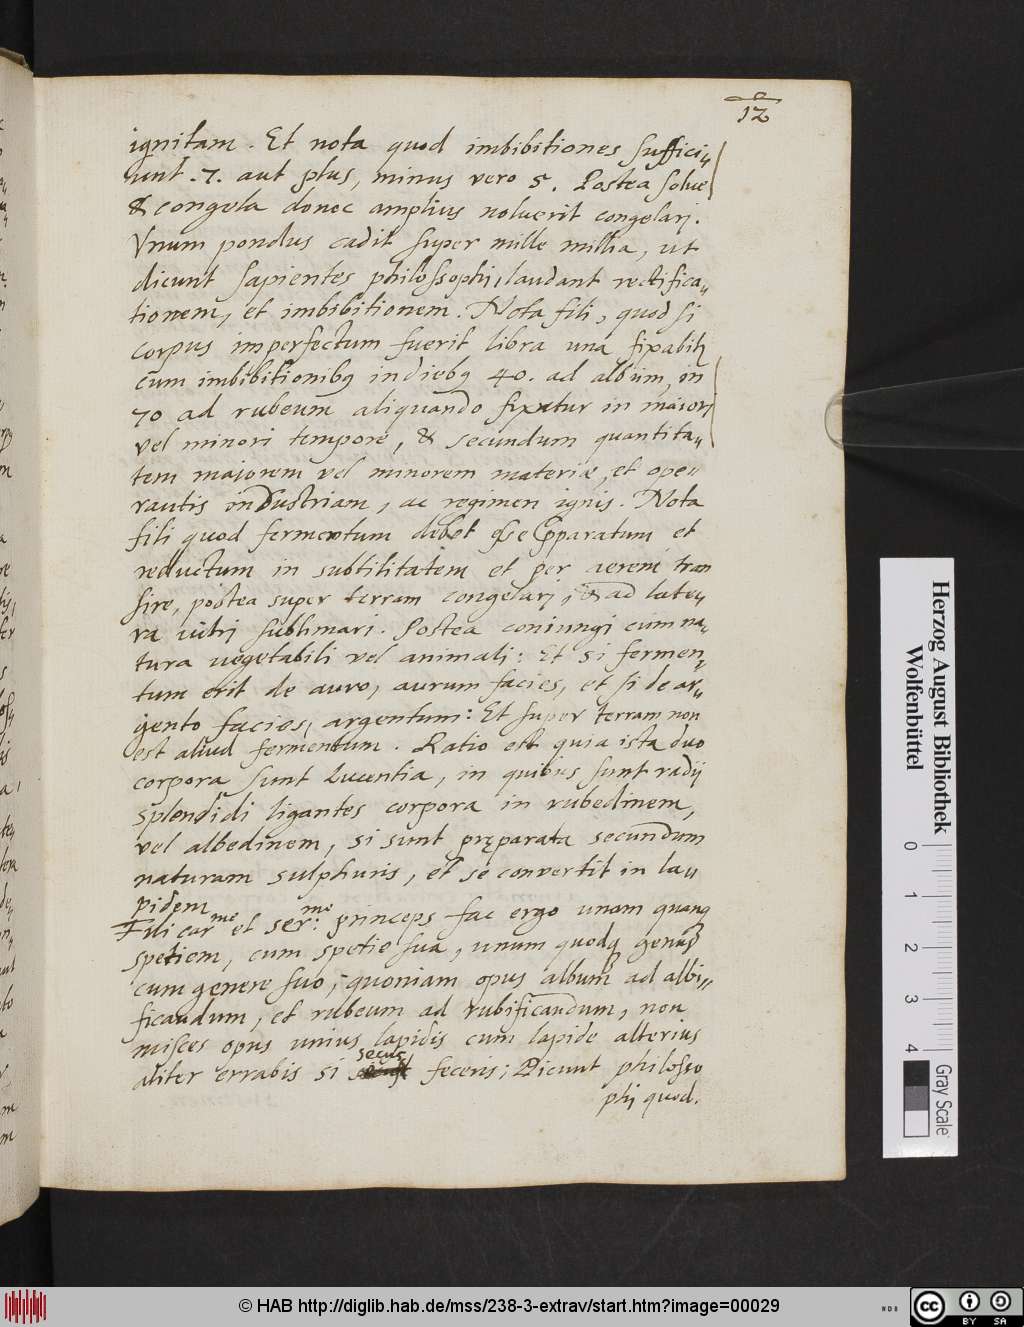 12
ignitam. Et nota quod imbibitiones suffici„
unt .7. aut plus, minus vero 5. Postea solue
& congela donec amplius noluerit congelarj.
Vnum pondus cadit super mille millia, ut
dicunt sapientes philossophj, laudant rectifica„
tionem, et imbibitionem. Nota fili, quod si
corpus imperfectum fuerit libra una fixabit
cum imbibitionibus in diebus 40. ad album, in
70 ad rubeum aliquando fixatur in maiorj
vel minori tempore, & secundum quantita„
tem maiorem vel minorem materiæ, et ope„
rantis industriam, ac regimen ignis. Nota
fili quod fermentum debet esse pparatum et
reductum in subtilitatem et per aerem tran
sire, postea super terram congelarj, & ad late„
ra vitrj sublimari. Postea coniungi cum na„
tura vegetabili vel animali: Et si fermen„
tum erit de auro, aurum facies, et si de ar„
gento facies, argentum: Et super terram non
est aliud fermentum. Ratio est quia ista duo
corpora sunt lucentia, in quibus sunt radij
splendidi ligantes corpora in rubedinem,
vel albedinem, si sunt pręparata secundum
naturam sulphuris, et se convertit in la„
pidem
Fili car me et ser: me princeps fac ergo unam quamq
spetiem, cum spetie sua, unum quodq genus
cum genere suo, quoniam opus album ad albi„
ficandum, et rubeum ad rubificandum, non
misces opus unius lapidis cum lapide alterius
aliter errabis si secus feceris; Dicunt philosso
phj quod.
Herzog August Bibliothek
Wolfenbüttel
0 1 2 3 4
Gray Scale
© HAB http://diglib.hab.de/mss/238-3-extrav/start.htm?image=00029
NDB
cc BY SA